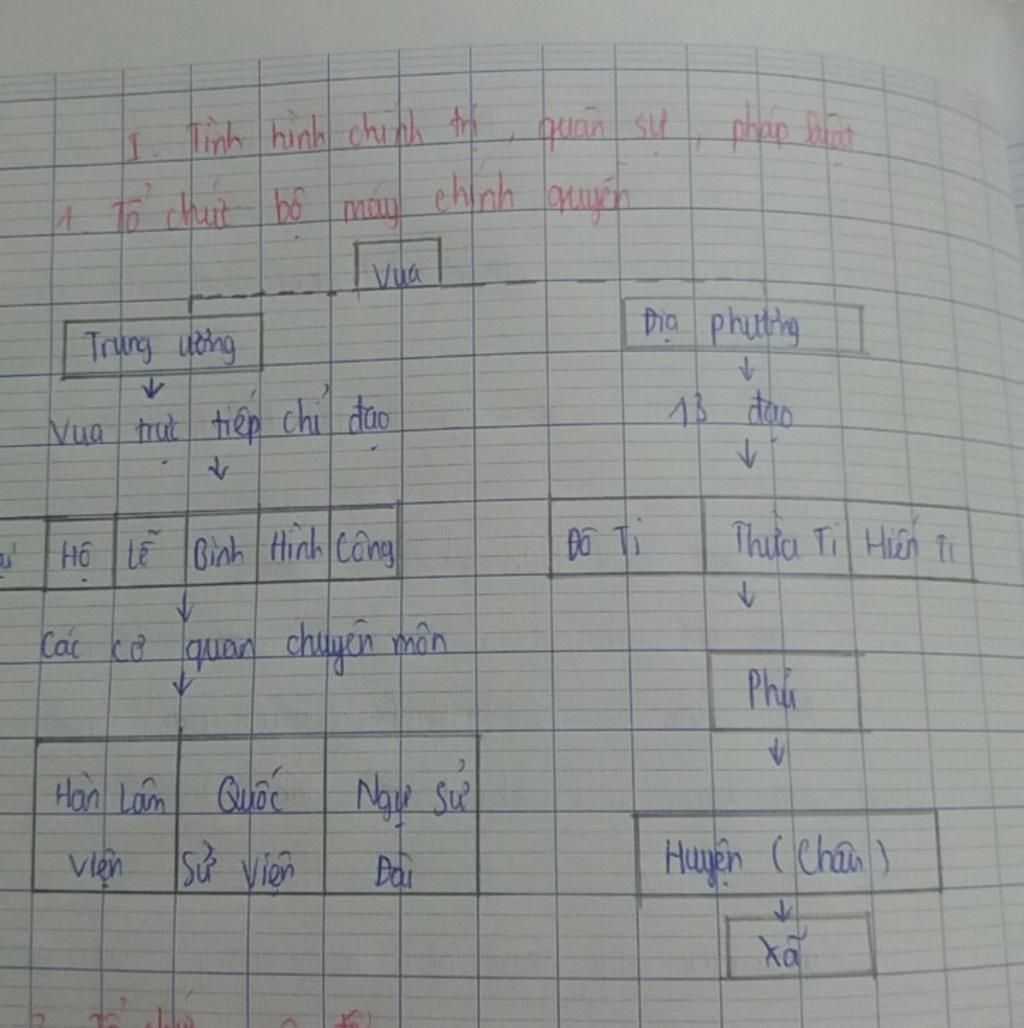 I. Tình hình chính trị, quân sự, pháp luật
1. Tổ chức bộ máy chính quyền
Vua
Trung ương
Địa phương
Vua trực tiếp chỉ đạo
13 đạo
Hộ Lễ Binh Hình Công
Đô Ti Thừa Ti Hiến Ti
Các cơ quan chuyên môn
Phủ
Hàn Lâm Viện
Quốc Sử Viện
Ngự Sử Đài
Huyện (Châu)
Xã